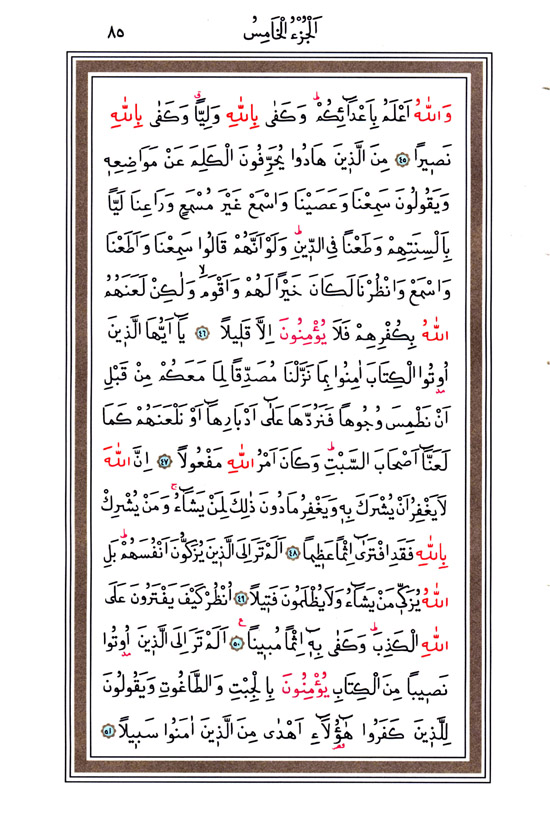 اَلْجُزْءُ الْخَامِسُ
٨٥
وَاللّٰهُ اَعْلَمُ بِاَعْدَٓائِكُمْۜ وَكَفٰى بِاللّٰهِ وَلِيًّاۗ وَكَفٰى بِاللّٰهِ
نَص۪يرًا ﴿٤٥﴾ مِنَ الَّذ۪ينَ هَادُوا يُحَرِّفُونَ الْكَلِمَ عَنْ مَوَاضِعِه۪
وَيَقُولُونَ سَمِعْنَا وَعَصَيْنَا وَاسْمَعْ غَيْرَ مُسْمَعٍ وَرَاعِنَا لَيًّا
بِاَلْسِنَتِهِمْ وَطَعْنًا فِي الدّ۪ينِۜ وَلَوْ اَنَّهُمْ قَالُوا سَمِعْنَا وَاَطَعْنَا
وَاسْمَعْ وَانْظُرْنَا لَكَانَ خَيْرًا لَهُمْ وَاَقْوَمَۙ وَلٰكِنْ لَعَنَهُمُ
اللّٰهُ بِكُفْرِهِمْ فَلَا يُؤْمِنُونَ اِلَّا قَل۪يلًا ﴿٤٦﴾ يَٓا اَيُّهَا الَّذ۪ينَ
اُو۫تُوا الْكِتَابَ اٰمِنُوا بِمَا نَزَّلْنَا مُصَدِّقًا لِمَا مَعَكُمْ مِنْ قَبْلِ
اَنْ نَطْمِسَ وُجُوهًا فَنَرُدَّهَا عَلٰٓى اَدْبَارِهَٓا اَوْ نَلْعَنَهُمْ كَمَا
لَعَنَّٓا اَصْحَابَ السَّبْتِۜ وَكَانَ اَمْرُ اللّٰهِ مَفْعُولًا ﴿٤٧﴾ اِنَّ اللّٰهَ
لَا يَغْفِرُ اَنْ يُشْرَكَ بِه۪ وَيَغْفِرُ مَا دُونَ ذٰلِكَ لِمَنْ يَشَٓاءُۚ وَمَنْ يُشْرِكْ
بِاللّٰهِ فَقَدِ افْتَرٰٓى اِثْمًا عَظ۪يمًا ﴿٤٨﴾ اَلَمْ تَرَ اِلَى الَّذ۪ينَ يُزَكُّونَ اَنْفُسَهُمْۜ بَلِ
اللّٰهُ يُزَكّ۪ي مَنْ يَشَٓاءُ وَلَا يُظْلَمُونَ فَت۪يلًا ﴿٤٩﴾ اُنْظُرْ كَيْفَ يَفْتَرُونَ عَلَى
اللّٰهِ الْكَذِبَۜ وَكَفٰى بِه۪ٓ اِثْمًا مُب۪ينًا۟ ﴿٥٠﴾ اَلَمْ تَرَ اِلَى الَّذ۪ينَ اُو۫تُوا
نَص۪يبًا مِنَ الْكِتَابِ يُؤْمِنُونَ بِالْجِبْتِ وَالطَّاغُوتِ وَيَقُولُونَ
لِلَّذ۪ينَ كَفَرُوا هٰٓؤُ۬لَٓاءِ اَهْدٰى مِنَ الَّذ۪ينَ اٰمَنُوا سَب۪يلًا ﴿٥١﴾